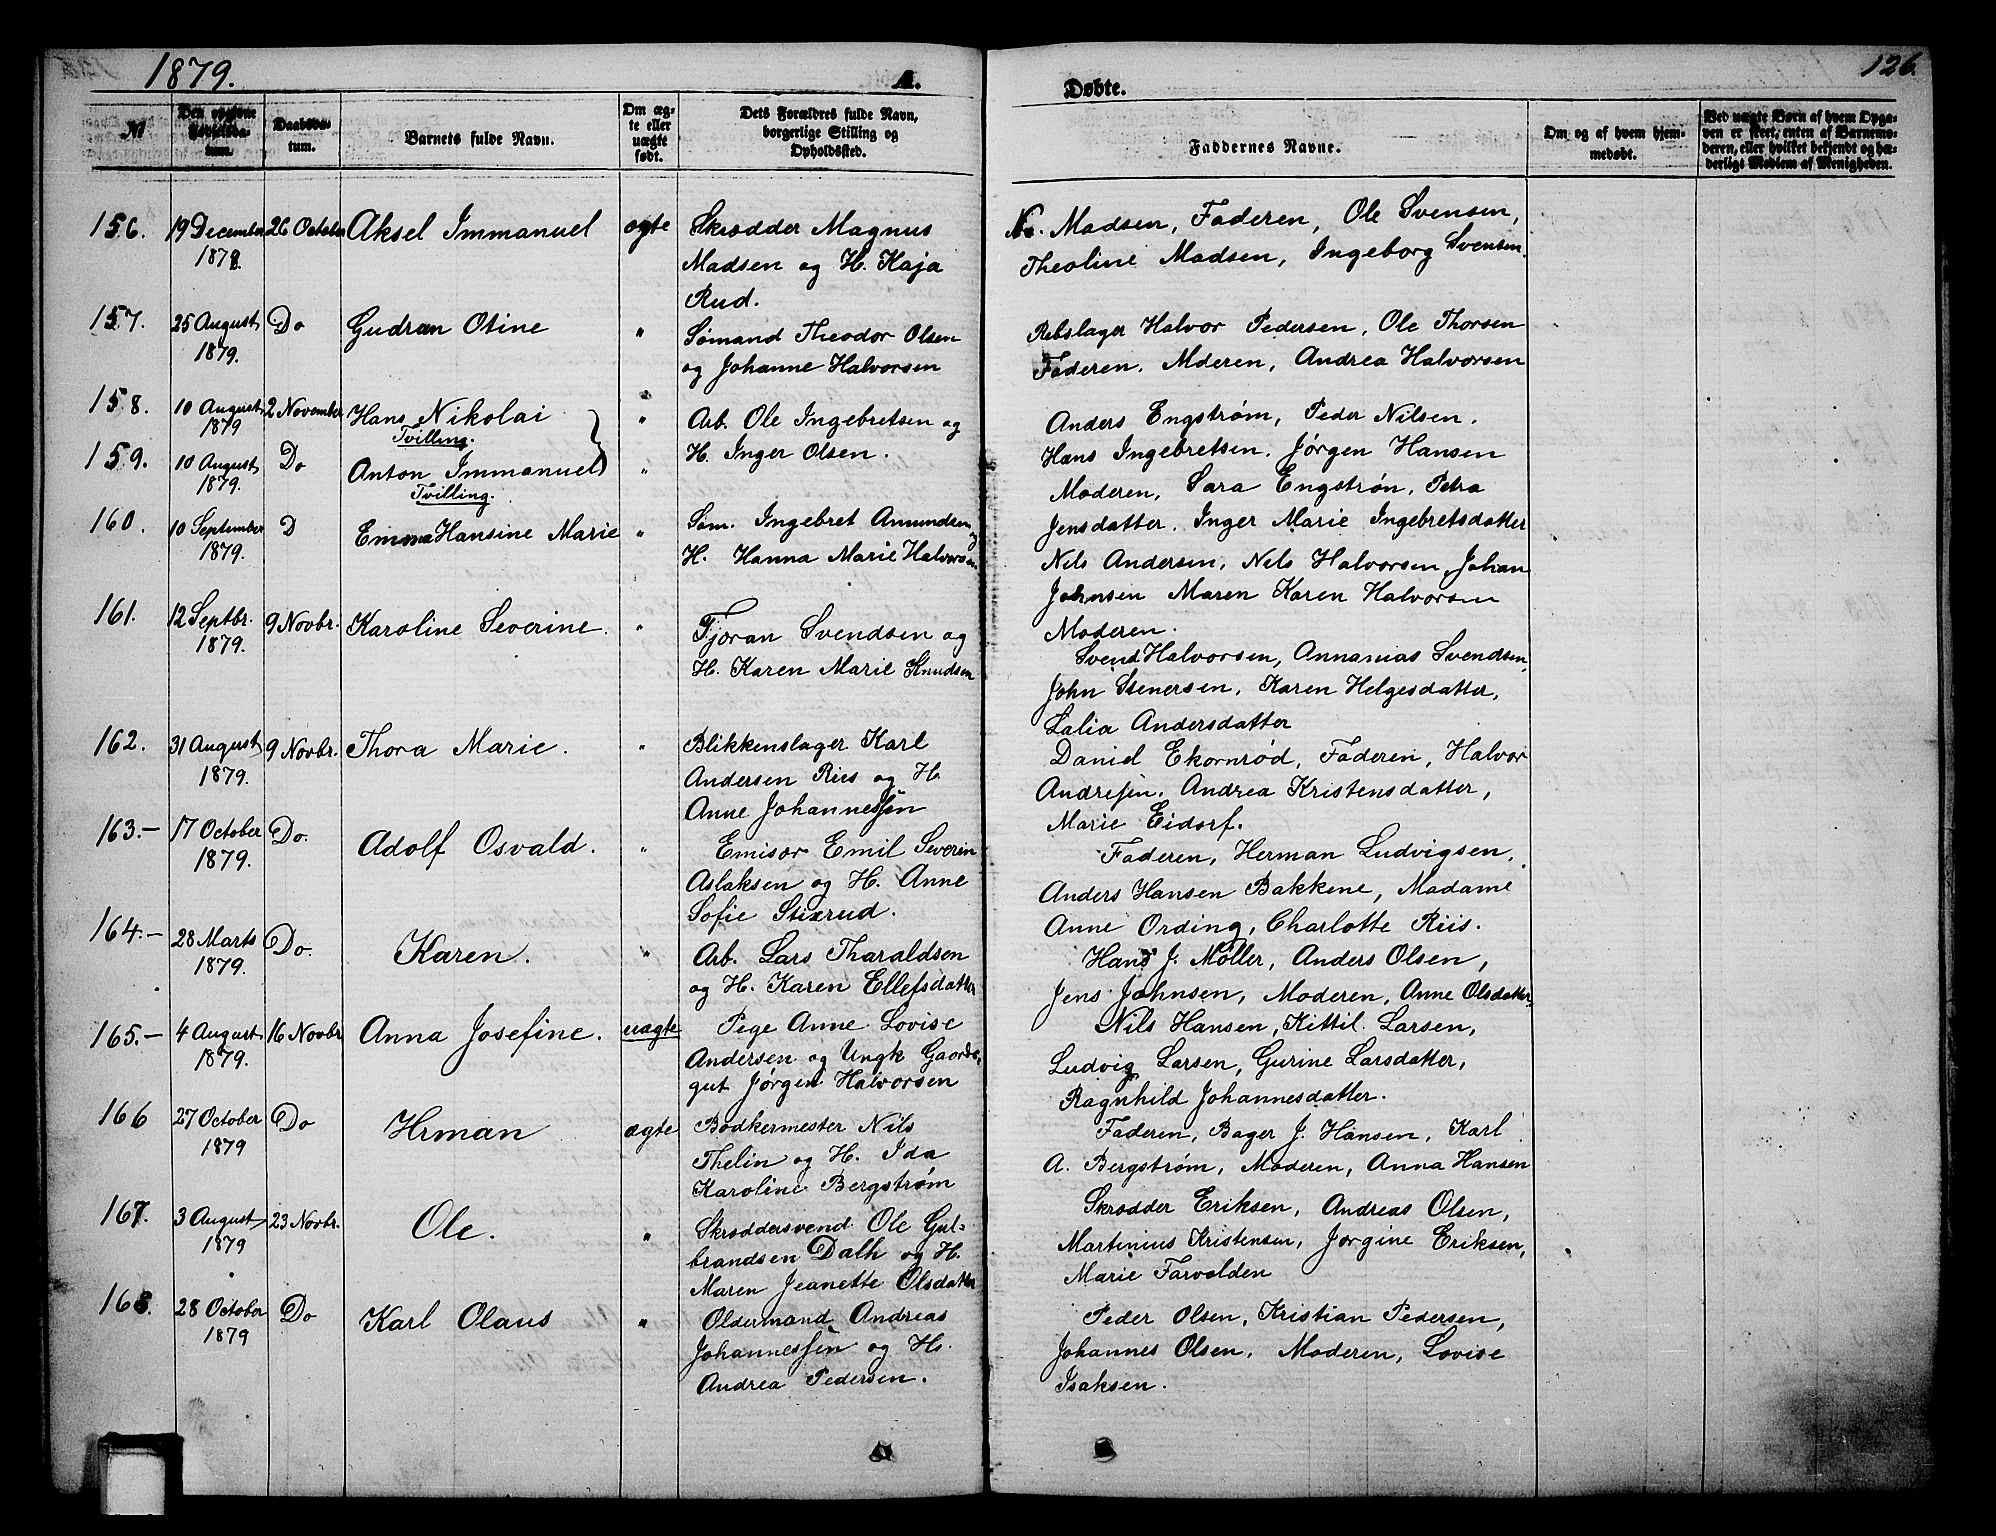 1879. A. Døbte. 126.
№
Den opgivne Fødselsdatum.
Daabsdatum.
Barnets fulde Navn.
Om ægte eller uægte født.
Dets Forældres fulde Navn, borgerlige Stilling og Opholdssted.
Faddernes Navne.
Om og af hvem hjemmedøbt.
Ved uægte Børn af hvem Opgaven er skeet, enten af Barnemoderen, eller hvilket bekjendt og hæderligt Medlem af Menigheden.
156. 19 December 1878. 26 October Aksel Immanuel ægte
Skrædder Magnus
Madsen og H. Kaja
Rud.
Madsen, Faderen, Ole Svensen,
Theoline Madsen, Ingeborg Svensen.
157. 25 August 1879. Do Gudrun Otine "
Sømand Theodor Olsen
og Johanne Halvorsen
Rebslager Halvor Pedersen, Ole Thorsen
Faderen, Mderen, Andrea Halvorsen
158. 10 August 1879 2 November Hans Nikolai "
Tvilling.
159. 10 August 1879. Do Anton Immanuel "
Tvilling.
Arb. Ole Ingebretsen og
H. Inger Olsen.
Anders Engstrøm, Peder Nilsen.
Hans Ingebretsen, Jørgen Hansen
Moderen, Sara Engstrøn, Petra
Jensdatter, Inger Marie Ingebretsdatter
160. 10 September 1879. D Emma Hansine Marie "
Søm. Ingebret Amundsen og
H. Hanna Marie Halvorsen
Nils Andersen, Nils Halvorsen, Johan
Johnsen Maren Karen Halvorsen
Moderen.
161. 12 Septbr. 1879. 9 Novbr. Karoline Severine. "
Tjøran Svendsen og
H. Karen Marie Knudsen
Svend Halvorsen, Annanias Svendsen,
John Stenersen, Karen Helgesdatter,
Lalia Andersdatter
162. 31 August 1879. 9 Novbr. Thora Marie. "
Blikkenslager Karl
Andersen Riis og H.
Anne Johannessen
Daniel Ekornrød, Faderen, Halvor
Andresen, Andrea Kristensdatter,
Marie Eidorf.
163.- 17 October 1879. Do. Adolf Osvald. "
Emisør Emil Severin
Aslaksen og H. Anne
Sofie Stixrud.
Faderen, Herman Ludvigsen,
Anders Hansen Bakkene, Madame
Anne Ording, Charlotte Riis.
164.- 28 Marts 1879. Do. Karen. "
Arb. Lars Tharaldsen
og H. Karen Ellefsdatter
Hans J. Møller, Anders Olsen,
Jens Johnsen, Moderen, Anne Olsdatter
165.- 4 August 1879. 16 Novbr Anna Josefine. uægte
Pege Anne Lovise
Andersen og Ungk Gaards-
gut Jørgen Halvorsen
Nils Hansen, Kittil Larsen,
Ludvig Larsen, Gurine Larsdatter,
Ragnhild Johannesdatter.
166 27 October 1879 Do Hrman ægte
Bødkermester Nils
Thelin og H. Ida
Karoline Bergstrøm
Faderen, Bager J. Hansen, Karl
A. Bergstrøm, Moderen, Anna Hansen
167. 3 August 1879 23 Novbr. Ole. "
Skræddersvend Ole Gul-
brandsen Dalh og H.
Maren Jeanette Olsdatter
Skrædder Eriksen, Andreas Olsen,
Martinius Kristensen, Jørgine Eriksen,
Marie Farvolden
168. 28 October 1879 Do Karl Olaus "
Oldermand Andreas
Johannessen og H.
Andrea Pedersen.
Peder Olsen, Kristian Pedersen,
Johannes Olsen, Moderen, Lovise
Isaksen.